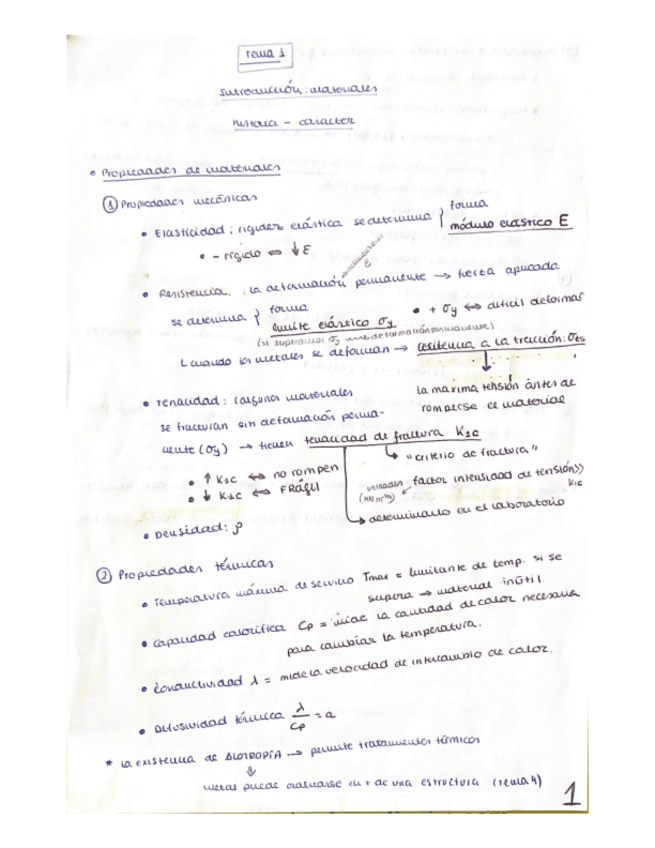 Tema 1
Introducción: materiales
historia - caracter
• Propiedades de materiales
① Propiedades mecánicas
• Elasticidad: rigidez elástica se determina } forma
módulo elástico E
• - rígido ⇔ ↓E
• Resistencia: la deformación permanente → fuerza aplicada
se determina } forma
límite elástico σy
• + σy ⇔ difícil deformar
(si superamos σy hay deformación permanente)
cuando los metales se deforman → resistencia a la tracción: σts
↓
la maxima tensión antes de
romperse el material
• Tenacidad: (algunos materiales
se fracturan sin deformación perma-
nente (σy) → tienen tenacidad de fractura K1c
↳ "criterio de fractura"
• ↑ K1c ⇔ no rompen
• ↓ K1c ⇔ FRÁGIL
unidades
factor intensidad de tensión>>
K1c
↳ determinarlo en el laboratorio
• Densidad: ρ
② Propiedades térmicas
• Temperatura máxima de servicio Tmax = limitante de temp. si se
supera → material inútil
• Capacidad calorífica Cp = mide la cantidad de calor necesaria
para cambiar la temperatura.
• Conductividad λ = mide la velocidad de intercambio de calor.
• Difusividad térmica λ/Cp = a
* La existencia de ALOTROPÍA → permite tratamientos térmicos
↓
metal puede ordenarse en + de una estructura (tema 4)
1